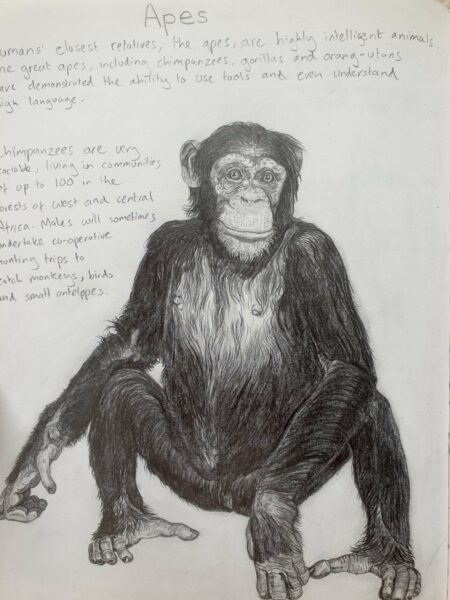 Apes
umans' closest relatives, the apes, are highly intelligent animals.
he great apes, including chimpanzees, gorillas and orang-utans
ave demonstrated the ability to use tools and even understand
ign language.
himpanzees are very
ociable, living in communities
of up to 100 in the
orests of west and central
Africa. Males will sometimes
ndertake co-operative
hunting trips to
catch monkeys, birds
and small antelopes.